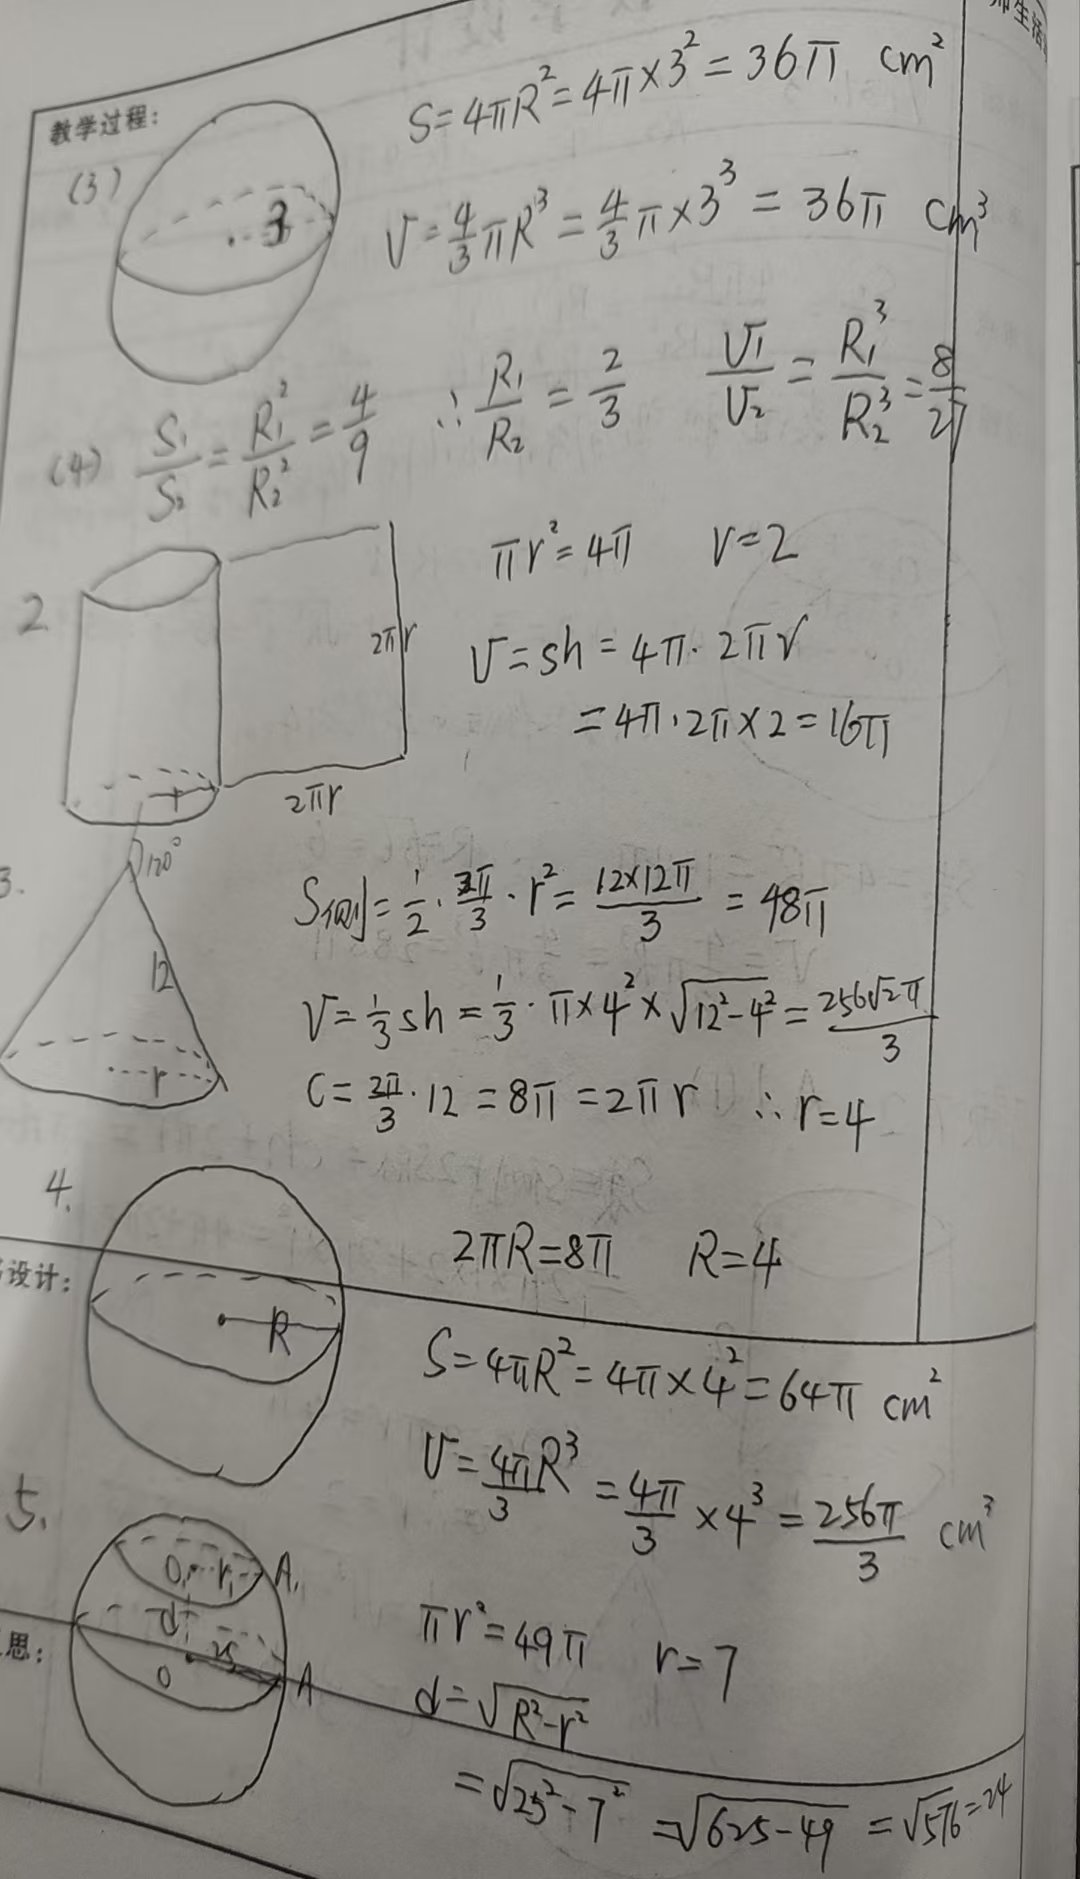 师生活
教学过程:
(3)
3
S=4πR²=4π×3²=36π cm²
V=4/3πR³=4/3π×3³=36π cm³
(4) S₁/S₂=R₁²/R₂²=4/9 ∴R₁/R₂=2/3 V₁/V₂=R₁³/R₂³=8/27
2
2πr
2πr
r
πr²=4π r=2
V=sh=4π·2πr
=4π·2π×2=16π
3.
120°
12
r
S侧=1/2·2π/3·r²=12×12π/3=48π
V=1/3sh=1/3·π×4²×√(12²-4²)=256√2π/3
C=2π/3·12=8π=2πr ∴r=4
4.
设计:
R
2πR=8π R=4
S=4πR²=4π×4²=64π cm²
V=4π/3R³=4π/3×4³=256π/3 cm³
5.
O₁ r₁ A₁
d
25
O A
思:
πr²=49π r=7
d=√(R²-r²)
=√(25²-7²)=√(625-49)=√576=24